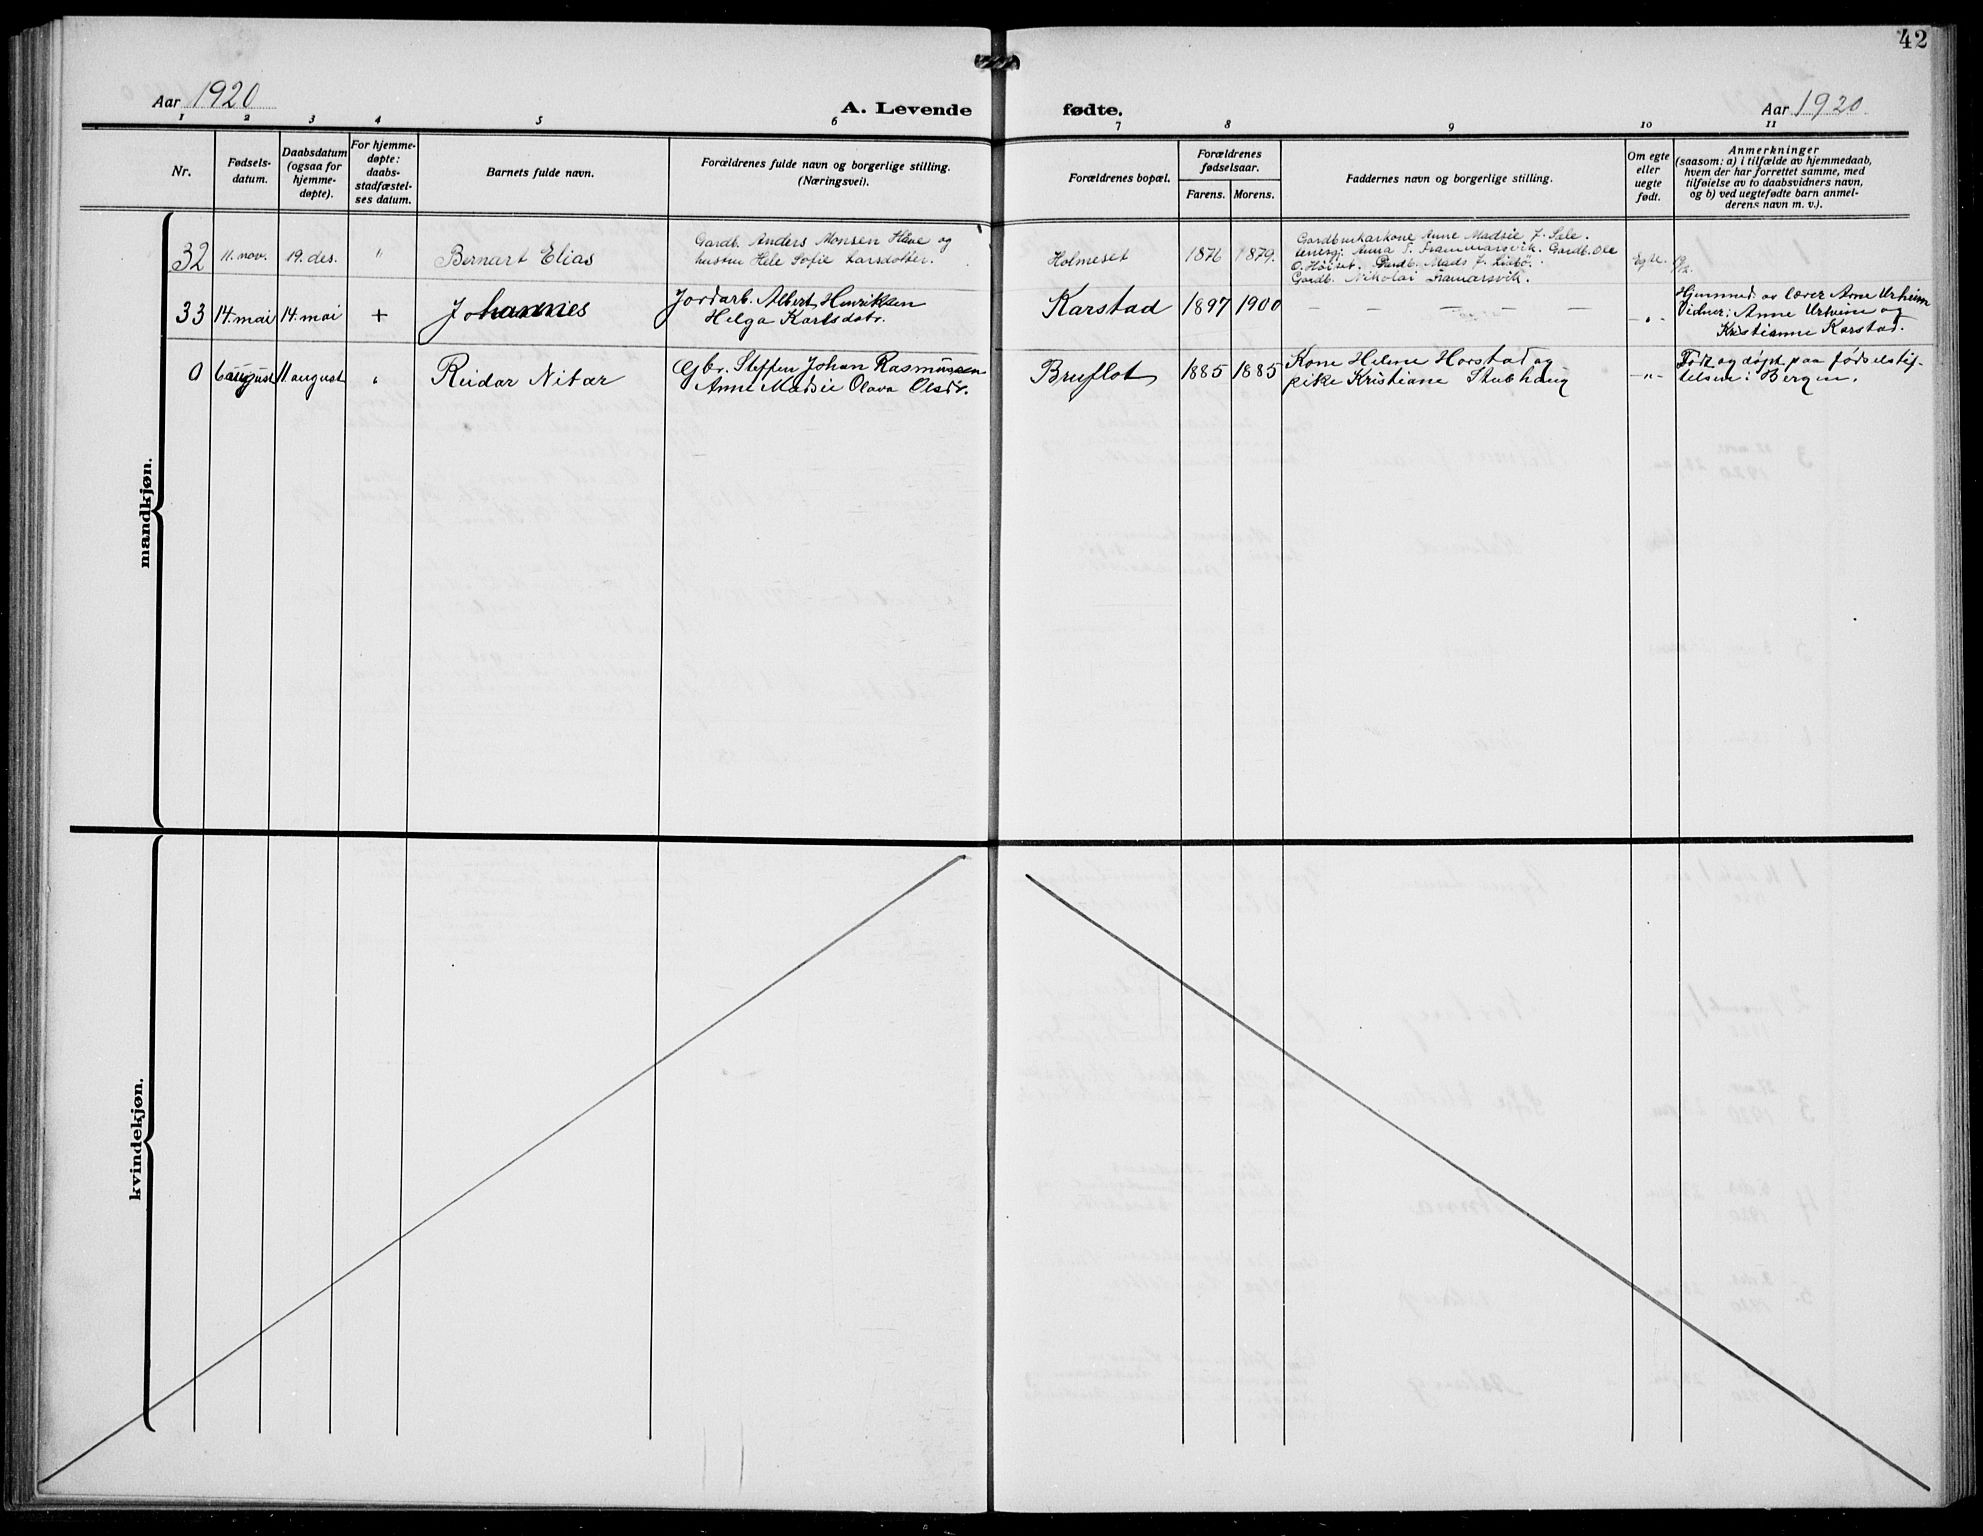 42
Aar 1920
A. Levende fødte.
Aar 1920
1 2 3 4 5 6 7 8 9 10 11
Nr.
Fødsels-
datum.
Daabsdatum
(ogsaa for
hjemme-
døpte).
For hjemme-
døpte:
daabs-
stadfæstel-
ses datum.
Barnets fulde navn.
Forældrenes fulde navn og borgerlige stilling.
(Næringsvei).
Forældrenes bopæl.
Forældrenes
fødselsaar.
Farens. Morens.
Faddernes navn og borgerlige stilling.
Om egte
eller
uegte
født.
Anmerkninger
(saasom: a) i tilfælde av hjemmedaab,
hvem der har forrettet samme, med
tilføielse av to daabsvidners navn,
og b) ved uegtefødte barn anmel-
derens navn m. v.).
mandkjøn.
32 11. nov. 19. des. " Bernart Elias
Gardb. Anders Monsen Håve og
hustru Hele Sofie Larsdotter.
Holmeset 1876 1879.
Gardbrukarkone Anne Madsie J. Sele.
Anna T. Frammarsvik. Gardb. Ole
O. Høiset. Gardb. Mads J.
Gardb. Nikolai Framarsvik.
Egte. 19/12.
33 14. mai 14. mai + Johannes
Jordarb. Albert Henriksen
Helga Karlsdotr.
Karstad 1897 1900
— — — — —
— " —
Hjemmed. av lærer Arne Urheim
Vidner: Anne Urheim og
Kristianne Karstad.
0 6 august 11 august " Reidar Nitar
Gbr. Steffen Johan Rasmussen
Anne Madsie Olava Olsdtr.
Bruflot 1885 1885
Kone Helene Horstad og
pike Kristiane Stubhaug
— " —
Født og døpt paa fødselstif-
telsen i Bergen.
kvindekjøn.